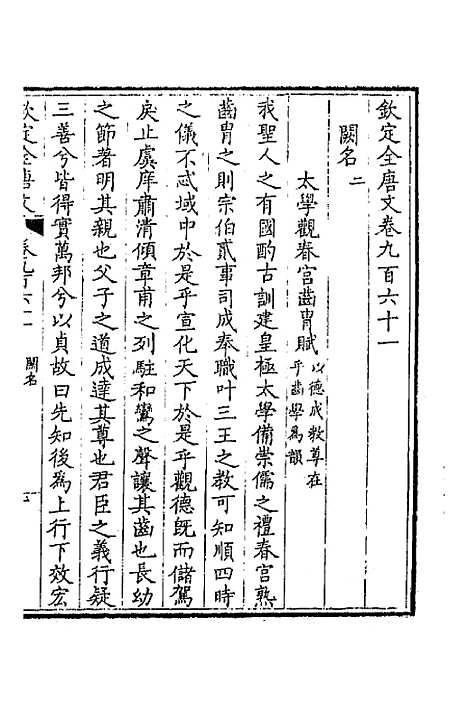 欽定全唐文卷九百六十一
闕名二
太學觀春宮齒胄賦以德成教尊在
乎齒學為韻
我聖人之有國酌古訓建皇極太學備崇儒之禮春宮熟
齒胄之則宗伯貳事司成奉職叶三王之教可知順四時
之儀不忒域中於是乎宣化天下於是乎觀德旣而儲駕
戾止虞庠肅清傾章甫之列駐和鸞之聲讓其齒也長幼
之節著明其親也父子之道成達其尊也君臣之義行疑
三善兮皆得實萬邦兮以貞故曰先知後為上行下效宏
欽定全唐文
卷九百六十一
闕名
一